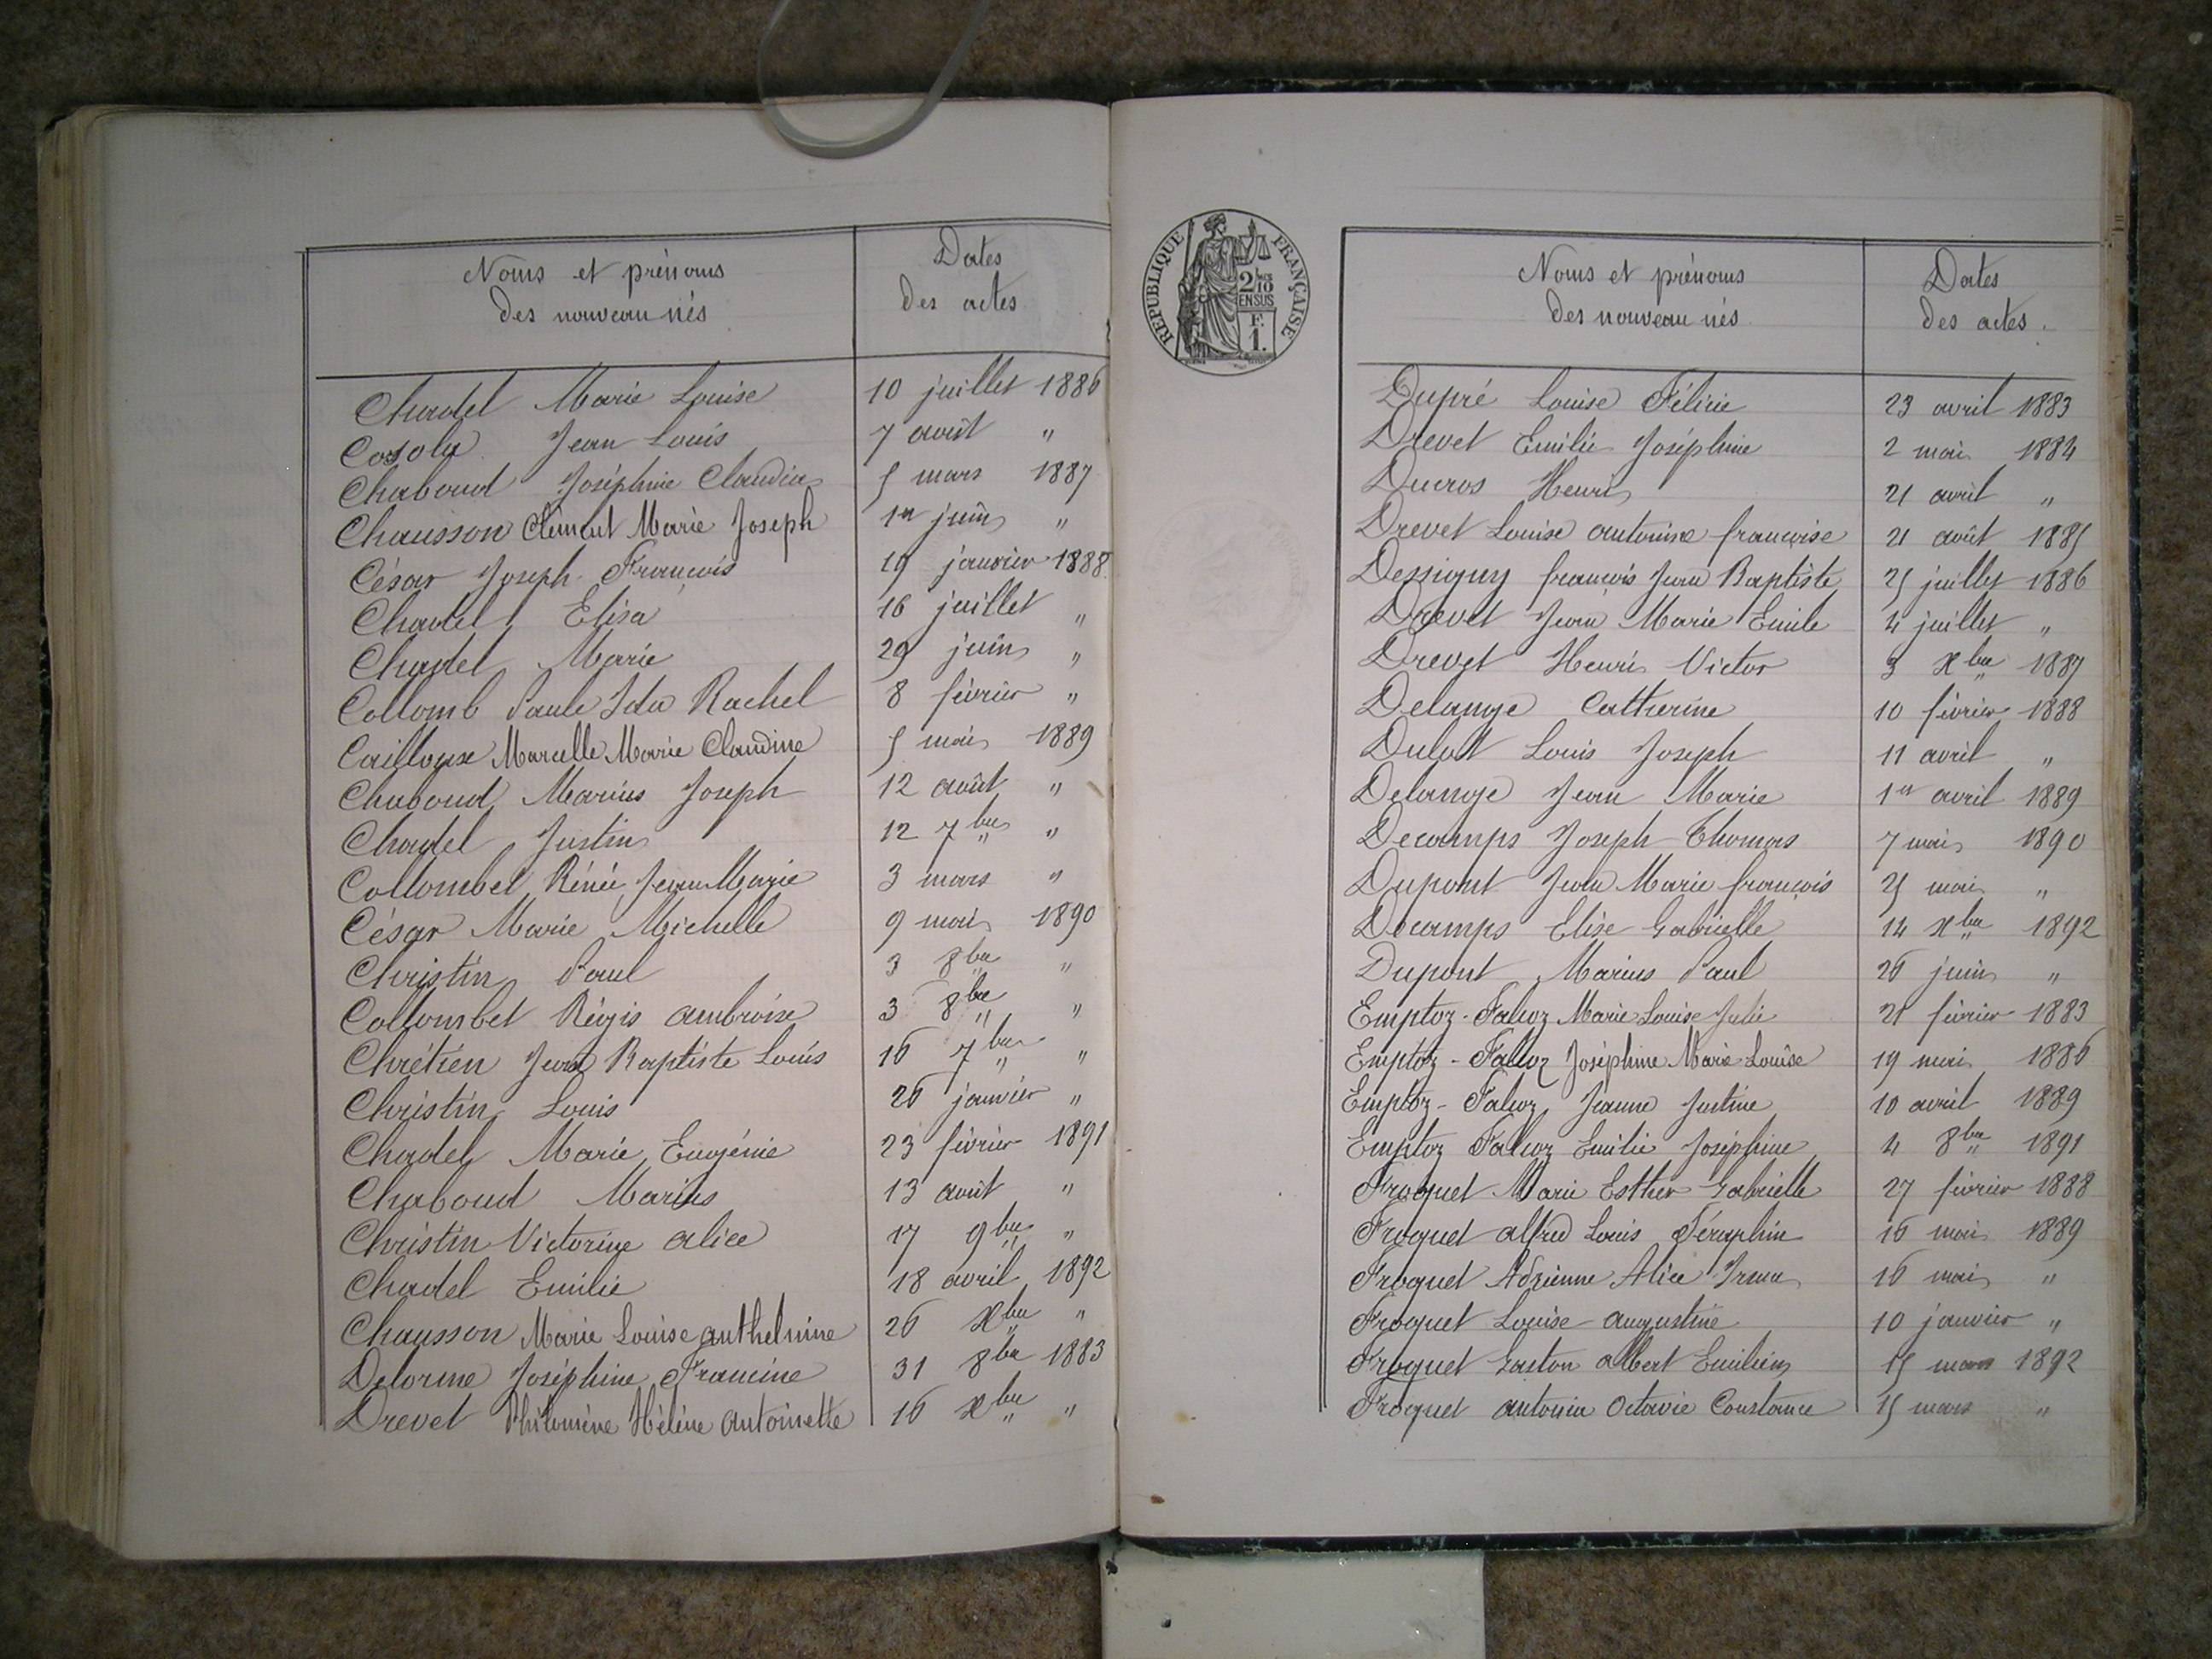 Noms et prénoms Dates
des nouveau nés des actes
Chadel Marie Louise 10 juillet 1886
Cosola Jean Louis 7 août "
Chaboud Joséphine Claudia 5 mars 1887
Chausson Clément Marie Joseph 1er juin "
César Joseph François 19 janvier 1888
Chadel Elisa 16 juillet "
Chadel Marie 29 juin "
Collomb Paule Ida Rachel 8 février "
Cailloux Marcelle Marie Claudine 5 mai 1889
Chaboud Marius Joseph 12 août "
Chadel Justin 12 7bre "
Collombet Rénée Jean Marie 3 mars "
César Marie Michelle 9 mai 1890
Christin Paul 3 8bre "
Collombet Régis ambroise 3 8bre "
Chrétien Jean Baptiste Louis 16 7bre "
Christin Louis 26 janvier "
Chadel Marie Eugénie 23 février 1891
Chaboud Marius 13 août "
Christin Victorine alice 17 9bre "
Chadel Emilie 18 avril 1892
Chausson Marie Louise anthelmine 26 Xbre "
Delorme Joséphine Francine 31 8bre 1883
Drevet Philomène Hélène antoinette 16 Xbre "
REPUBLIQUE FRANÇAISE
2/10
EN SUS
F.
1.
Noms et prénoms Dates
des nouveau nés des actes.
Dupré Louise Félicie 23 avril 1883
Drevet Emilie Joséphine 2 mai 1884
Ducros Henri 21 avril "
Drevet Louise antoinine françoise 21 août 1885
Dessigny françois Jean Baptiste 25 juillet 1886
Drevet Jean Marie Emile 4 juillet "
Drevet Henri Victor 3 Xbre 1887
Delange Catherine 10 février 1888
Louis Joseph 11 avril "
Delange Jean Marie 1er avril 1889
Decamps Joseph Thomas 7 mai 1890
Dupont Jean Marie françois 25 mai "
Decamps Elise Gabrielle 14 Xbre 1892
Dupont Marius Paul 26 juin "
Emptoz-Falcoz Marie Louise Julie 21 février 1883
Emptoz-Falcoz Joséphine Marie Louise 19 mai 1886
Emptoz-Falcoz Jeanne Justine 10 avril 1889
Emptoz Falcoz Emilie Joséphine 4 8bre 1891
Froquet Marie Esther Gabrielle 27 février 1888
Froquet alfred Louis Séraphin 16 mai 1889
Froquet Adrienne Alice Irma 16 mai "
Froquet Louise augustine 10 janvier "
Froquet Gaston albert Emilien 15 mars 1892
Froquet antonia Octavie Constance 15 mars "